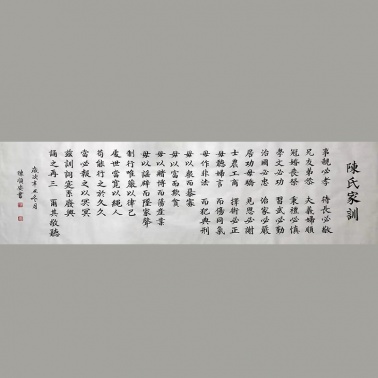 陳氏家訓
事親必孝 待長必敬
兄友弟恭 夫義婦順
冠婚喪祭 秉禮必慎
學文必功 習武必勤
居功毋驕 見恩必謝
治國必忠 治家必嚴
士農工商 擇術必正
毋聽婦言 而傷同氣
毋作非法 而犯典刑
毋以眾而暴寡
毋以富而欺貧
毋以賭博而蕩產業
毋以謠辟而墜家聲
制行唯嚴以律己
處世當寬以繩人
苟能行之於久久
當必報之以冥冥
茲訓寔系廢興
誦之再三 爾其敬聽
歲次辛丑冬月